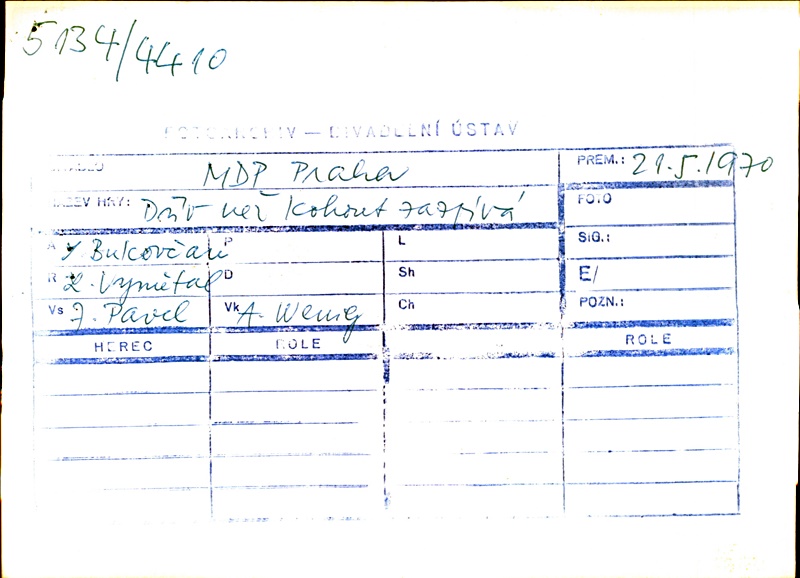 5134/4410
FOTOARCHIV — DIVADELNÍ ÚSTAV
DIVADLO MDP Praha PREM.: 21.5.1970
NÁZEV HRY: Dřív než kohout zazpívá FOTO
A I. Bukovčan P L SIG.:
R L. Vymětal D Sh E/
Vs J. Pavel Vk A. Wenig Ch POZN.:
HEREC ROLE ROLE